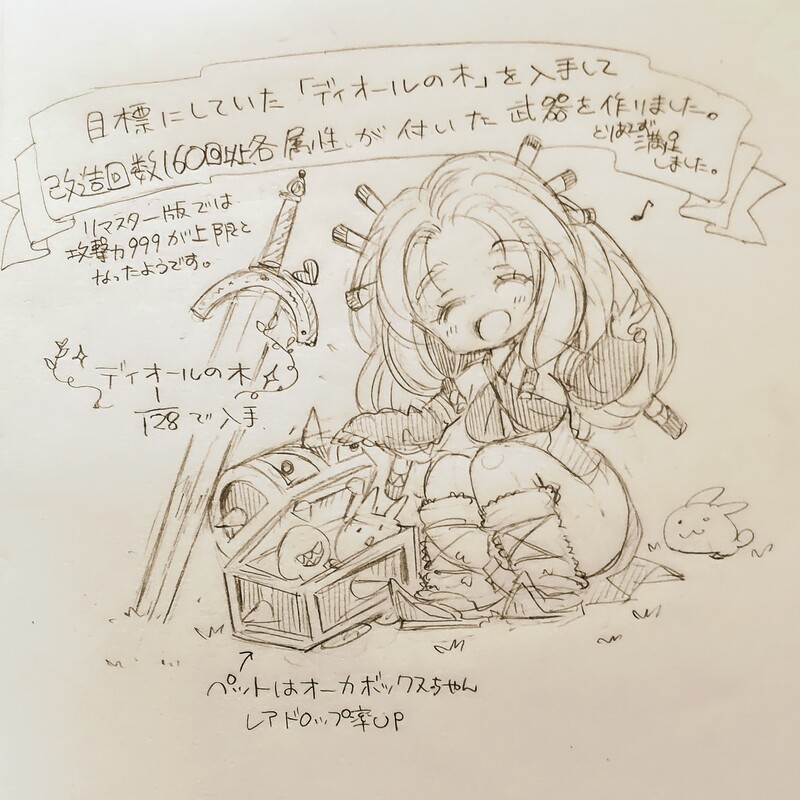 目標にしていた「ディオールの木」を入手して
改造回数160回以上各属性が付いた武器を作りました。
とりあえず
満足
しました。
リマスター版では
攻撃力999が上限と
なったようです。
ディオールの木
1
128で入手
ペットはオーカボックスちゃん
レアドロップ率UP